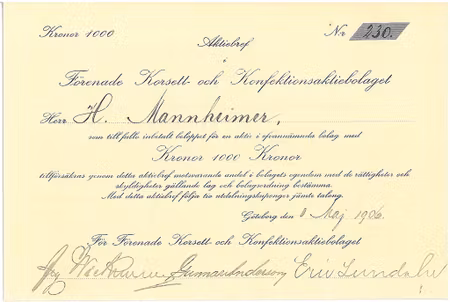 Kronor 1000 Nr 230.
Aktiebref
i
Förenade Korsett- och Konfektionsaktiebolaget
Herr H. Mannheimer,
som till fullo inbetalt beloppet för en aktie i ofvannämnda bolag med
Kronor 1000 Kronor
tillförsäkras genom detta aktiebref motsvarande andel i bolagets egendom med de rättigheter och
skyldigheter gällande lag och bolagsordning bestämma.
Med detta aktiebref följa tio utdelningskuponger jämte talong.
Göteborg den Maj 1906.
För Förenade Korsett- och Konfektionsaktiebolaget
Gunnar Anderson Eric Lundahl